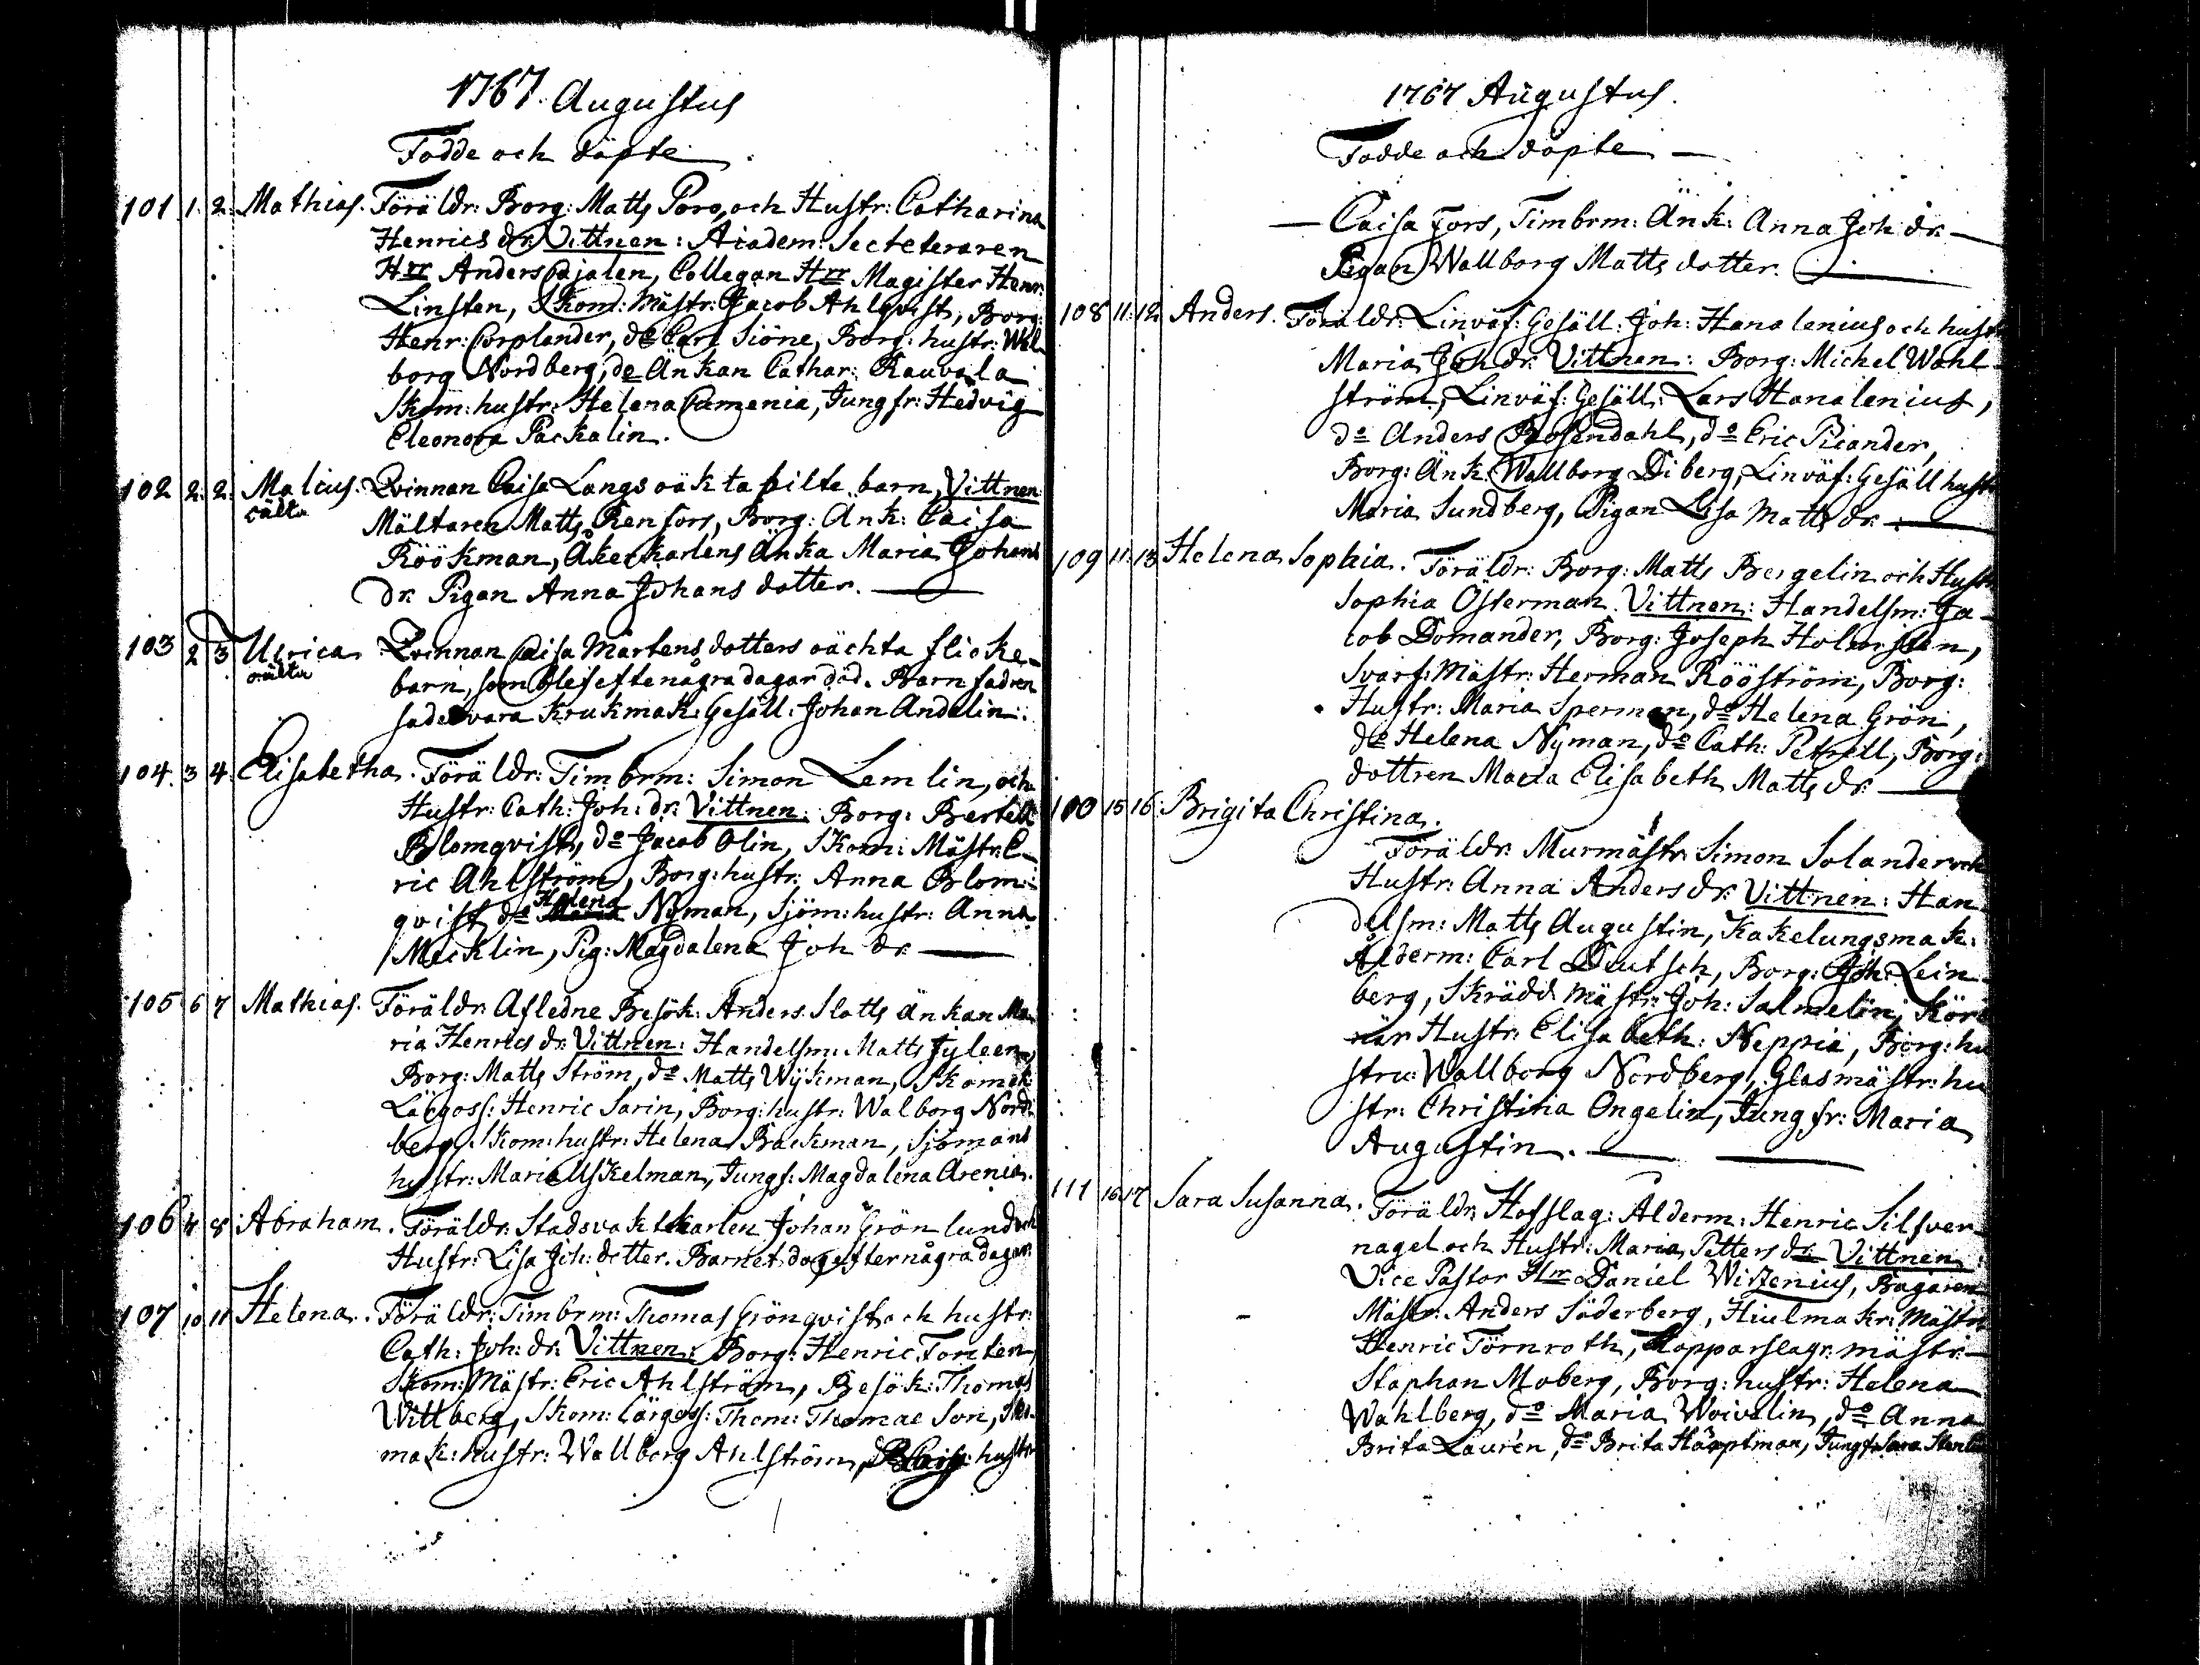 1767. Augustus
Födde och döpte
101 1. 2. Mathias. Föräldr: Borg: Matts Poro, och Hustr: Catharina
Henrics dr. Vittnen: Academ: Secreteraren
Hrr Anders Bjalen, Collegan Hrr Magister Henr:
Linsten, Skom: Mästr: Jacob Ahlqvist, Borg:
Henr: Corplander, do Carl Siöne, Borg: hustr: Wal-
borg Nordberg, do Änkan Cathar: Rauvala
Skom: hustr: Helena Camenia, Jungfr: Hedvig
Eleonora Packalin.
102 2. 2. Malcus. Qvinnan Caisa Langs oäkta pilte barn, Vittnen:
oälta Mältaren Matts Renfors, Borg: Änk: Caisa
Röökman, Åkerkarlens Änka Maria Johans
dr. Pigan Anna Johans dotter.
103 2 3 Ulrica Qvinnan Caisa Mårtens dotters oächta flicke-
oälta barn, som blef efte några dagar död. Barnfadren
sades vara Krukmak: Gesäll: Johan Andelin.
104. 3 4. Elisabetha. Föräldr: Timbrm: Simon Lemlin, och
Hustr: Cath: Joh: dr. Vittnen: Borg: Bertell
Blomqvist, do Jacob Olin, Skom: Mästr: E-
ric Ahlström, Borg: hustr: Anna Blom-
qvist, do Helena Nyman, Sjöm: hustr: Anna
Macklin, Pig: Magdalena Joh dr.
105 6 7 Mathias. Föräldr: Afledne Besök: Anders Slotts änkan Ma-
ria Henrics dr. Vittnen: Handelsm: Matts Jyleen,
Borg: Matts Ström, do Matts Wykman, Skomak:
Lärgoss: Henric Sarin, Borg: hustr: Walborg Nord-
berg, Skom: hustr: Helena Backman, Sjömans
hustr: Maria Uskelman, Jungf: Magdalena Arenia.
106 7 8 Abraham. Föräldr: Stadsvaktkarlen Johan Grönlund och
Hustr: Lisa Joh: dotter. Barnet dog efter några dagar.
107 10 11 Helena. Föräldr: Timbrm: Thomas Grönqvist och hustr:
Cath: Joh: dr. Vittnen: Borg: Henric Forsten,
Skom: Mästr: Eric Ahlström, Besök: Thomas
Wittberg, Skom: Lärgoss: Thom: Thomae Son, Sko-
mak: hustr: Wallborg Ahlström, hustr
1767 Augustus.
Födde och döpte
Caisa Fors, Timbrm: Änk: Anna Joh dr.
Pigan Wallborg Matts dotter.
108 11. 12. Anders. Föräldr: Linväf: Gesäll: Joh: Hanalenius och hustr
Maria Joh dr. Vittnen: Borg: Michel Wahl-
ström, Linväf: Gesäll: Lars Hanalenius,
do Anders Rosendahl, do Eric Picander,
Borg: Änk: Wallborg Diberg, Linväf: Gesäll hustr
Maria Sundberg, Pigan Lisa Matts dr.
109 11. 13 Helena Sophia. Föräldr: Borg: Matts Bergelin och Hustr
Sophia Österman. Vittnen: Handelsm: Ja-
cob Domander, Borg: Joseph Holmsten,
Svarf: Mästr: Herman Rööström, Borg:
Hustr: Maria Sperman, do Helena Grön,
do Helena Nyman, do Cath: Petrell, Borg:
dottren Maria Elisabeth Matts dr.
100 15 16. Brigita Christina.
Föräldr: Murmästr: Simon Solander och
Hustr: Anna Anders dr. Vittnen: Han
delsm: Matts Augustin, Kakelungsmak:
Ålderm: Carl Deutsch, Borg: Joh: Lein-
berg, Skrädd: Mästr: Joh: Salmelin, Kör
när Hustr: Elisabeth: Neppia, Borg: hu
stru: Wallborg Nordberg, Glasmästr: hu
str: Christina Ongelin, Jungfr: Maria
Augustin.
111 16. 17 Sara Susanna. Föräldr: Hofslag: Ålderm: Henric Silfver-
nagel och Hustr: Maria Petters dr. Vittnen:
Vice Pastor Hrr Daniel Wirzenius, Bagaren
Mästr: Anders Söderberg, Hiulmakr: Mästr
Henric Törnroth, Kopparslagr: mästr:
Staphan Moberg, Borg: hustr: Helena
Wahlberg, do Maria Woivelin, do Anna
Brita Laurén, do Brita Häuptman, Jungfr Sara